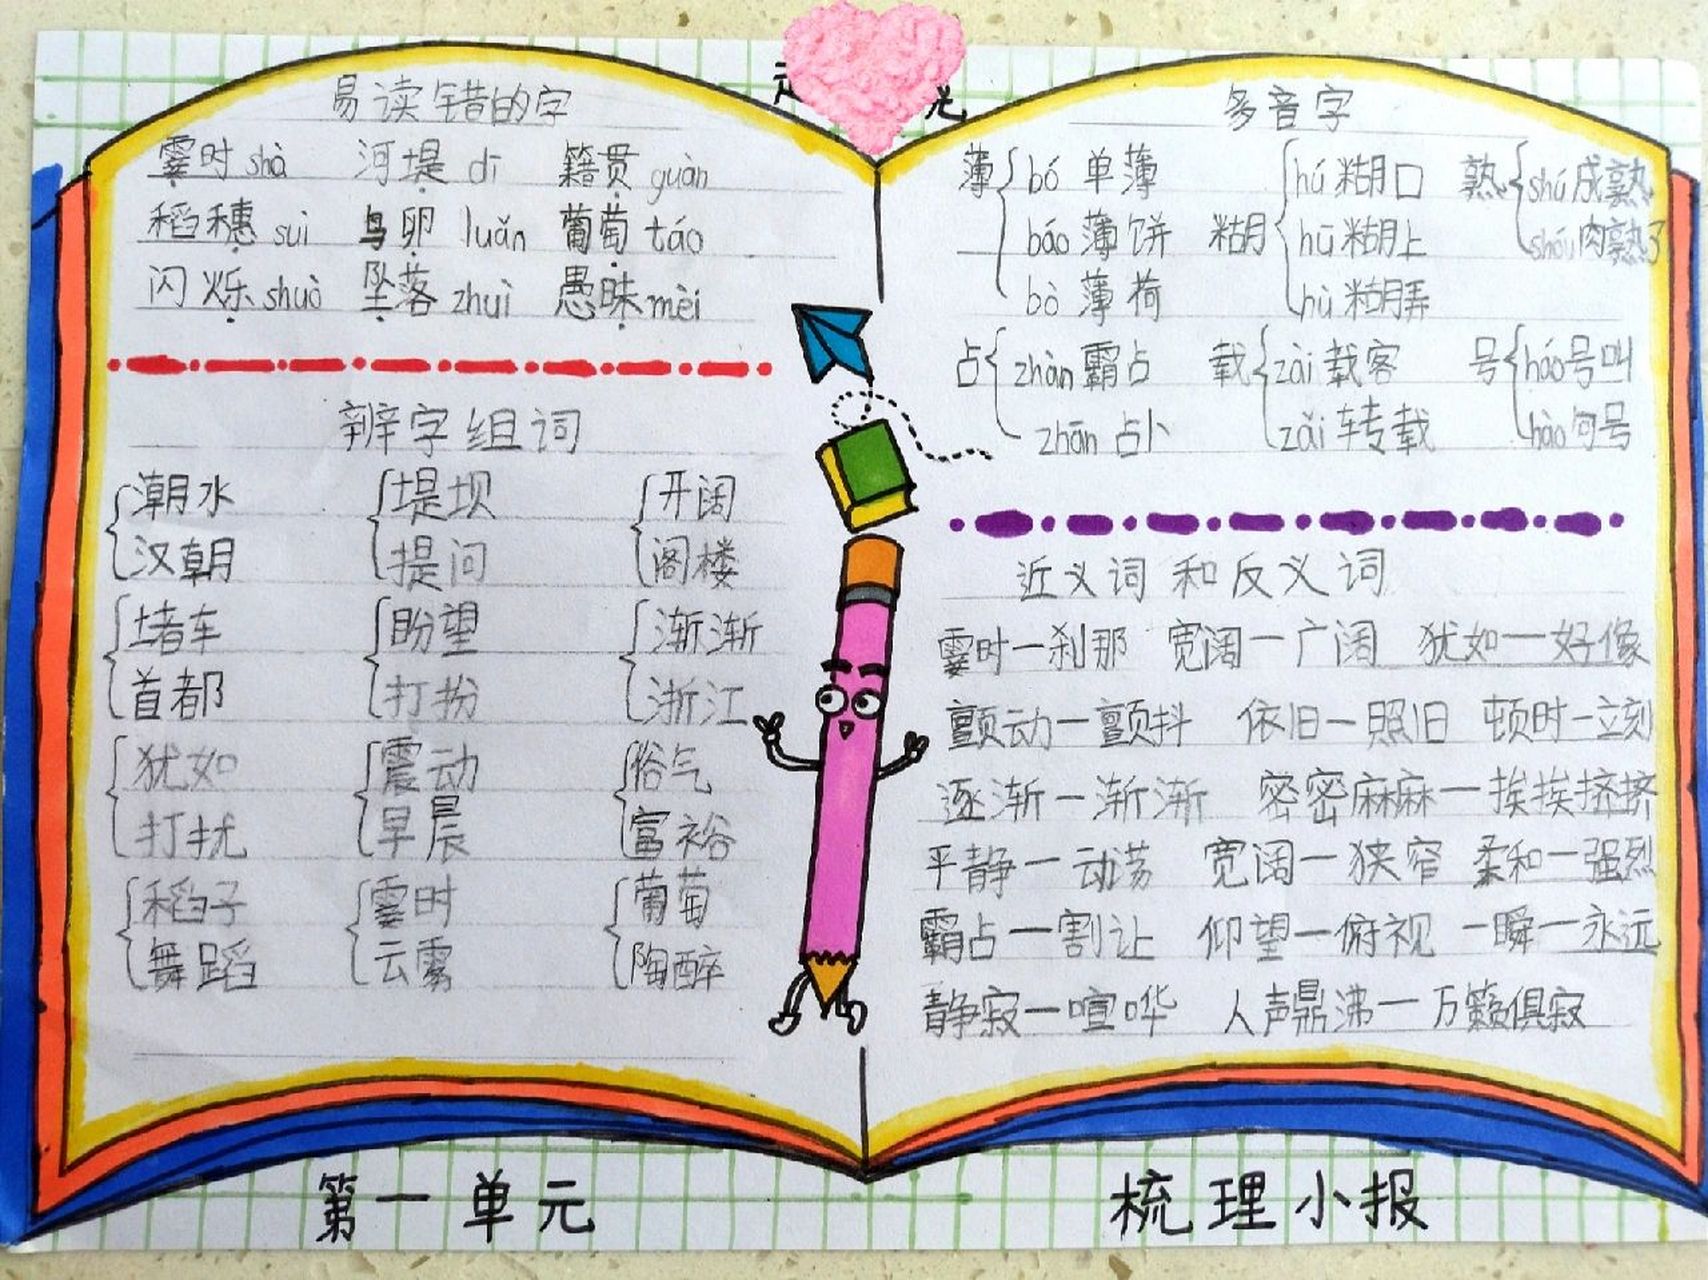 易读错的字
霎时 shà 河堤 dī 籍贯 guàn
稻穗 suì 鸟卵 luǎn 葡萄 táo
闪烁 shuò 坠落 zhuì 愚昧 mèi
辨字组词
潮水 堤坝 开阔
汉朝 提问 阁楼
堵车 盼望 渐渐
首都 打扮 浙江
犹如 震动 俗气
打扰 早晨 富裕
稻子 霎时 葡萄
舞蹈 云雾 陶醉
多音字
薄 bó 单薄 糊 hú 糊口 熟 shú 成熟
báo 薄饼 hū 糊上 shóu 肉熟了
bò 薄荷 hù 糊弄
占 zhàn 霸占 载 zài 载客 号 háo 号叫
zhān 占卜 zǎi 转载 hào 句号
近义词和反义词
霎时一刹那 宽阔一广阔 犹如一好像
颤动一颤抖 依旧一照旧 顿时一立刻
逐渐一渐渐 密密麻麻一挨挨挤挤
平静一动荡 宽阔一狭窄 柔和一强烈
霸占一割让 仰望一俯视 一瞬一永远
静寂一喧哗 人声鼎沸一万籁俱寂
第一单元 梳理小报